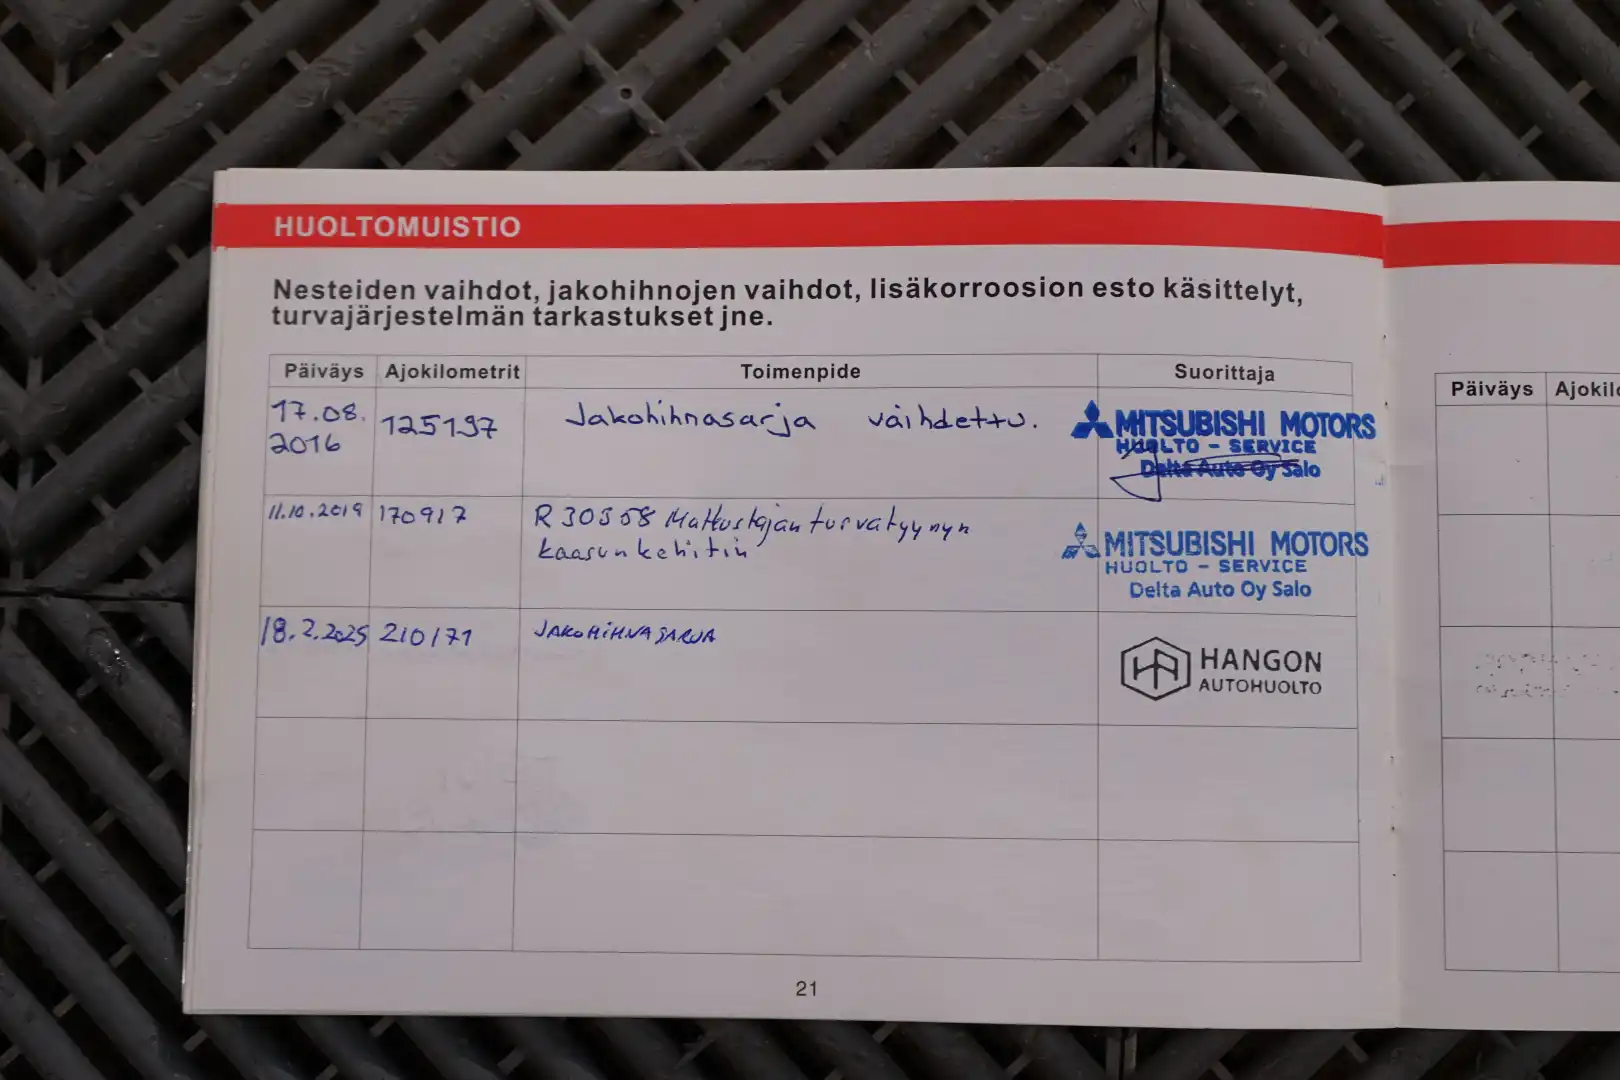 HUOLTOMUISTIO
Nesteiden vaihdot, jakohihnojen vaihdot, lisäkorroosion esto käsittelyt,
turvajärjestelmän tarkastukset jne.
Päiväys Ajokilometrit Toimenpide Suorittaja
17.08.
2016
125197
Jakohihnasarja vaihdettu.
MITSUBISHI MOTORS
HUOLTO - SERVICE
Delta Auto Oy Salo
11.10.2019 170917
R30358 Matkustajan turvatyynyn
kaasunkehitin
MITSUBISHI MOTORS
HUOLTO - SERVICE
Delta Auto Oy Salo
18.2.2025 210171 JAKOHIHNASARJA
HANGON
AUTOHUOLTO
21
Päiväys